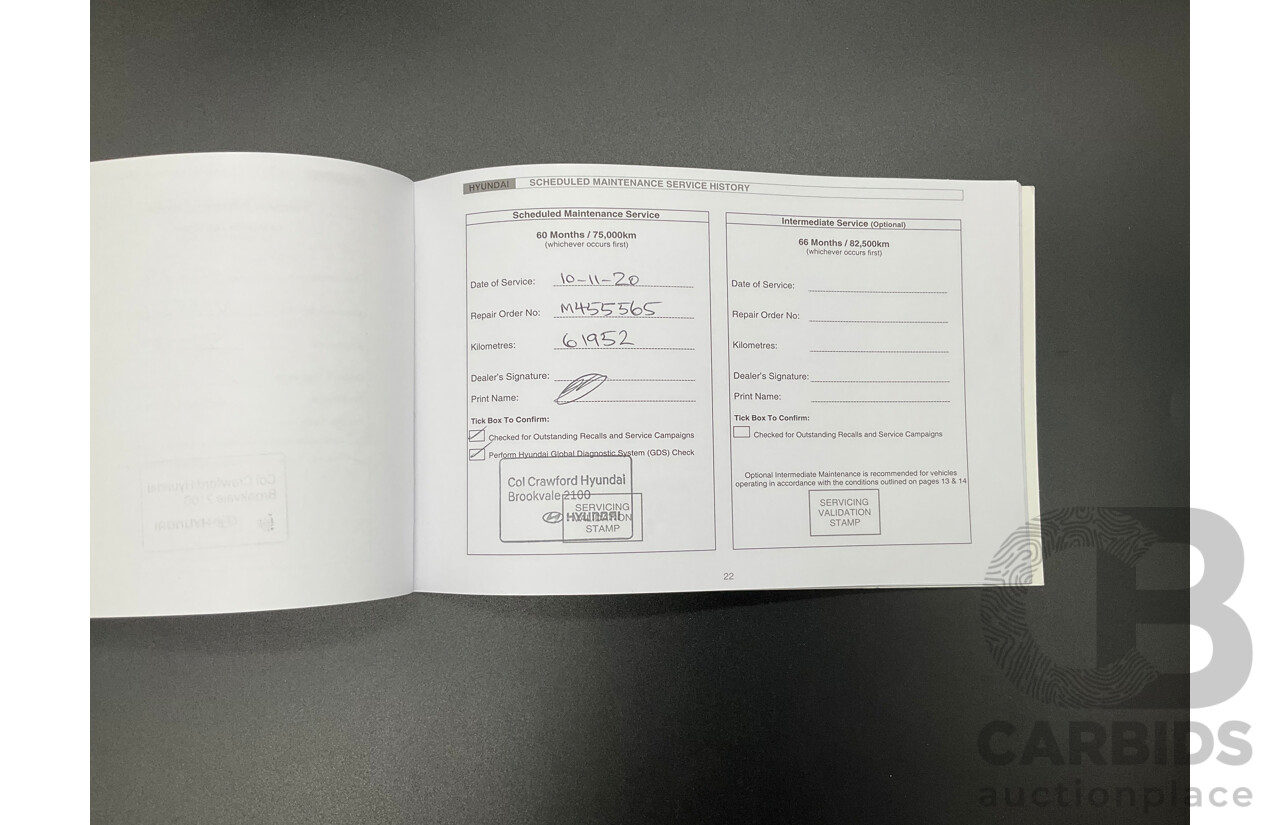 HYUNDAI SCHEDULED MAINTENANCE SERVICE HISTORY
Scheduled Maintenance Service
60 Months / 75,000km
(whichever occurs first)
Date of Service: 10-11-20
Repair Order No: M455565
Kilometres: 61952
Dealer's Signature:
Print Name:
Tick Box To Confirm:
Checked for Outstanding Recalls and Service Campaigns
Perform Hyundai Global Diagnostic System (GDS) Check
Col Crawford Hyundai
Brookvale 2100
HYUNDAI
SERVICING
VALIDATION
STAMP
Intermediate Service (Optional)
66 Months / 82,500km
(whichever occurs first)
Date of Service:
Repair Order No:
Kilometres:
Dealer's Signature:
Print Name:
Tick Box To Confirm:
Checked for Outstanding Recalls and Service Campaigns
Optional Intermediate Maintenance is recommended for vehicles
operating in accordance with the conditions outlined on pages 13 & 14
SERVICING
VALIDATION
STAMP
22
CB
CARBIDS
auctionplace